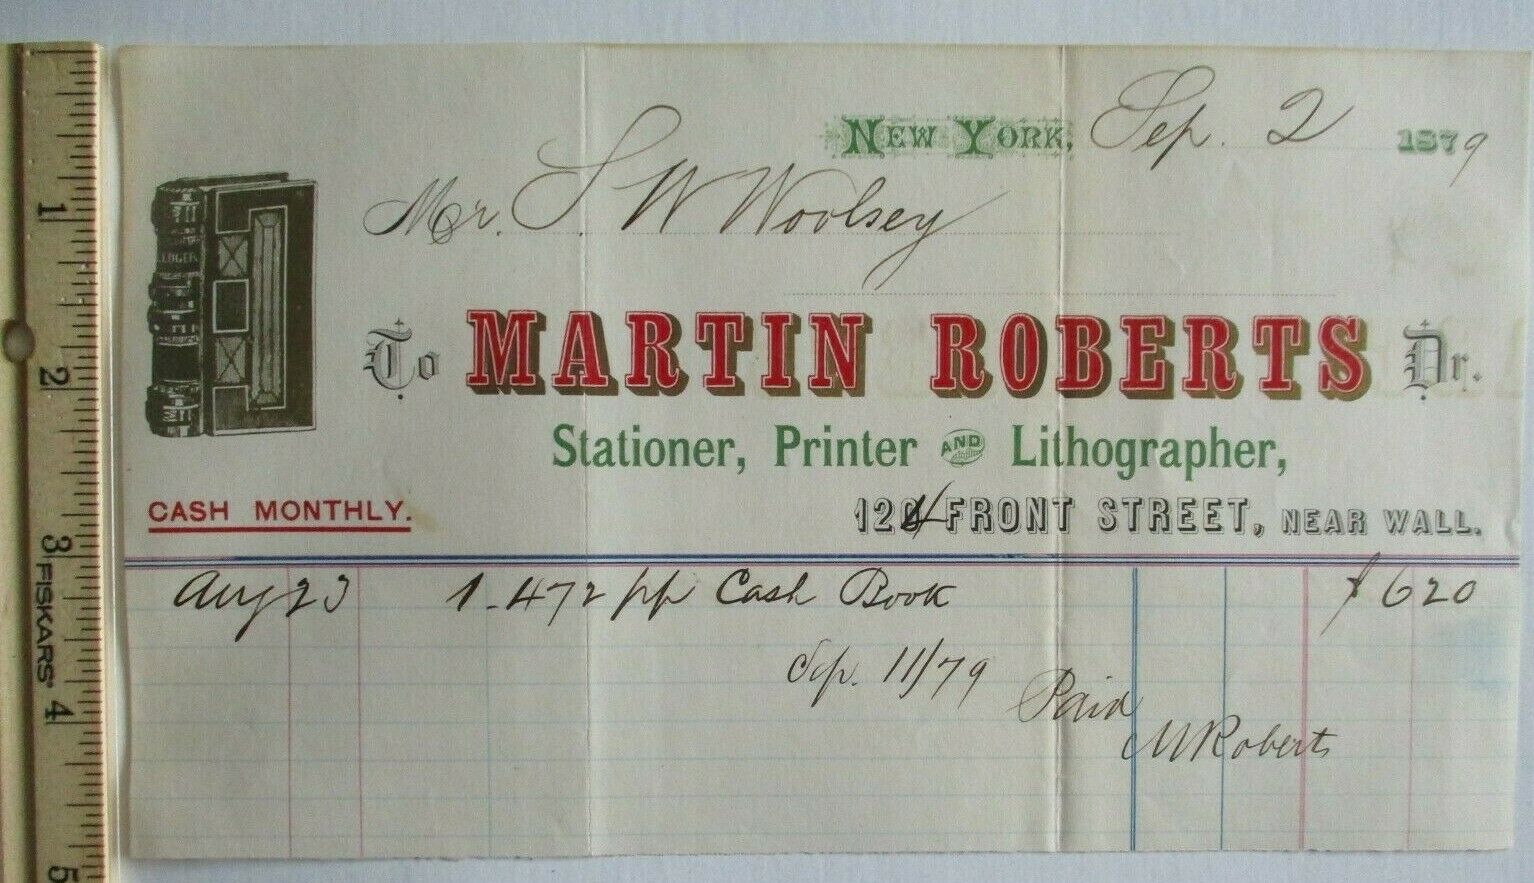 New York, Sep. 2 1879
Mr. S. W Woolsey
To MARTIN ROBERTS Dr.
Stationer, Printer AND Lithographer,
CASH MONTHLY.
124 FRONT STREET, NEAR WALL.
Aug 23 1-472 pp Cash Book $620
Sep. 11/79
Paid
M Roberts
1
2
3
FISKARS
4
5